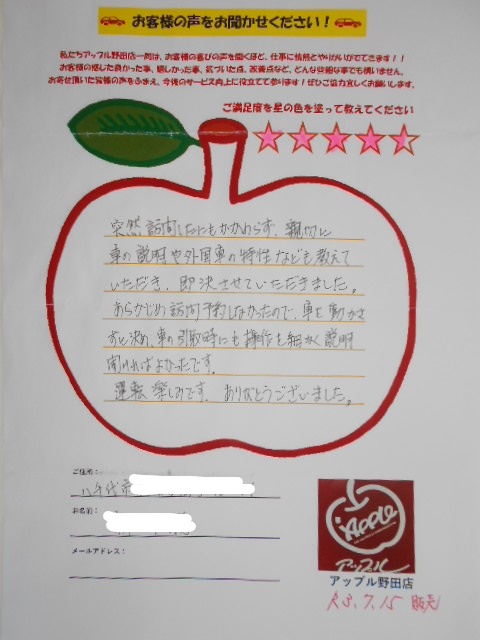 お客様の声をお聞かせください！
私たちアップル野田店一同は、お客様の喜びの声を聞くほど、仕事に情熱とやりがいがでてきます！！
お客様の感じた良かった事、嬉しかった事、気づいた点、改善点など、どんな些細な事でも構いません。
お寄せ頂いた皆様の声をふまえ、今後のサービス向上に役立てて参ります！ぜひご協力宜しくお願いします。
ご満足度を星の色を塗って教えてください
突然訪問したにもかかわらず、親切に
車の説明や外国車の特性なども教えて
いただき、即決させていただきました。
あらかじめ訪問予約しなかったので、車を動かさ
ずに決め、車の引取時にも操作を細かく説明
聞ければよかったです。
運転楽しみです。ありがとうございました。
ご住所：
八千代市
お名前：
メールアドレス：
Apple
アップル
アップル野田店
R3.7.15 販売